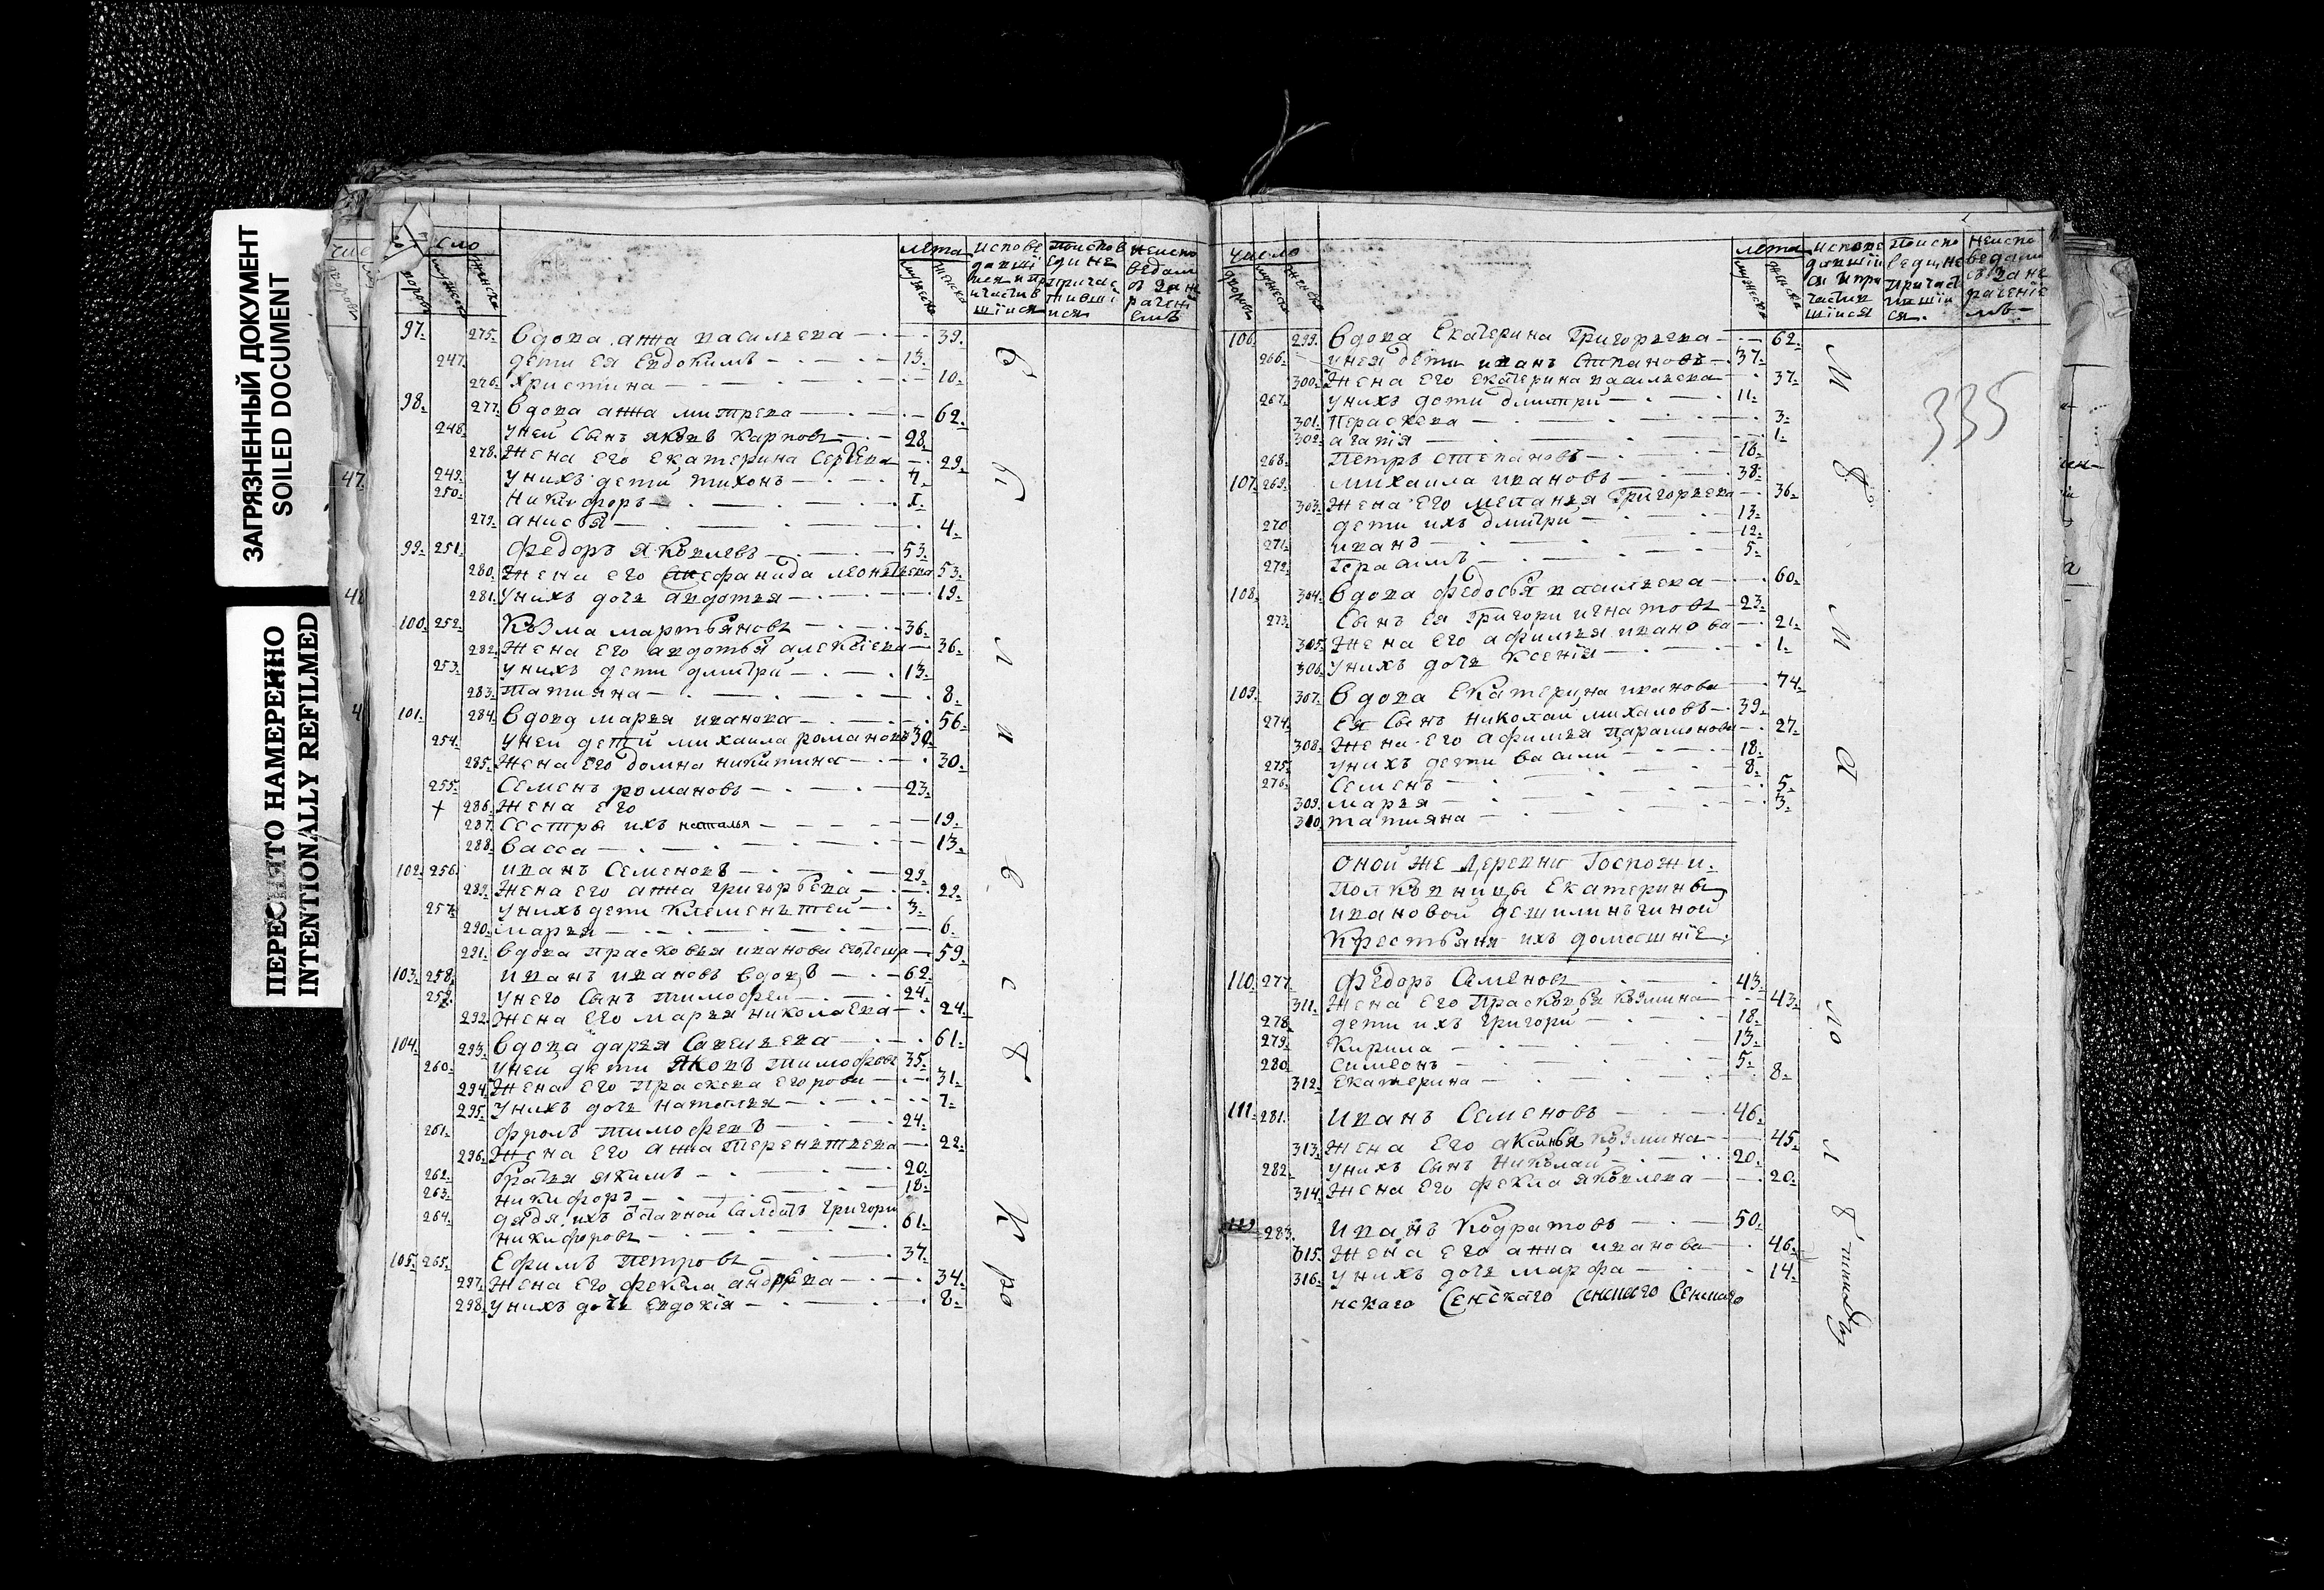 ЗАГРЯЗНЕННЫЙ ДОКУМЕНТ
SOILED DOCUMENT
ПЕРЕСНЯТО НАМЕРЕННО
INTENTIONALLY REFILMED
47.
сло
лета
97. 275. вдова анна васильева 39.
247. дети ея Евдокимъ 13.
276. Христина 10.
98. 277. вдова анна митрева 62.
248. уней сынъ яковъ карповъ 28.
278. Жена его екатерина 29.
249. унихъ дети тихонъ 7.
250. Никифоръ 1.
279. анисья 4.
99. 251. федоръ яковлевъ 53.
280. Жена его 53.
281. унихъ дочь авдотья 19.
100. 252. Козма мартьяновъ 36.
282. Жена его авдотья алексіева 36.
253. унихъ дети дмитри 13.
283. татияна 8.
101. 284. вдова марья иванова 56.
254. уней дети михаила романовъ 30.
285. Жена его домна никитина 30.
255. Семенъ романовъ 23.
286. Жена его
287. Сестры ихъ наталья 19.
288. васса 13.
102. 256. иванъ семеновъ 29.
289. Жена его анна григорьева 22.
257. унихъ дети клеменьтей 3.
290. марья 6.
291. вдова прасковья иванова 59.
103. 258. иванъ ивановъ вдовъ 62.
259. унего сынъ тимофеи 24.
292. Жена его марья николаева 24.
104. 293. вдова дарья савельева 61.
260. уней дети яковъ тимофевъ 35.
294. Жена его праскева егорова 31.
295. унихъ дочь наталья 7.
261. фролъ тимофеевъ 24.
296. Жена его анна теренътьева 22.
262. братья якимъ 20.
263. никифоръ 18.
264. дядя ихъ отставной салдатъ григори 61.
никифоровъ
105. 265. Ефимъ петровъ 37.
297. Жена его фекла андрева 34.
298. унихъ дочь евдокія 8.
число
лета
335
106. 299. вдова екатерина григорьева 62.
266. унея дети иванъ степановъ 37.
300. Жена его екатерина васильева 37.
267. унихъ дети дмитри 11.
301. Праскева 3.
302. агапія 1.
268. Петръ степановъ 18.
107. 269. михаила ивановъ 38.
303. Жена его меланья григорьева 36.
270. дети ихъ дмитри 13.
271. иванъ 12.
272. Герасимъ 5.
108. 304. вдова федосья васильева 60.
273. Сынъ ея григори игнатовъ 23.
305. Жена его афимья иванова 21.
306. унихъ дочь ксенія 1.
109. 307. вдова екатерина иванова 74.
274. ея сынъ николаи михаловъ 39.
308. Жена его афимья парамонова 27.
275. унихъ дети васили 18.
276. Семенъ 8.
309. марья 5.
310. татияна 3.
оной же деревни госпожи
полковницы екатерины
ивановой
крестьяня ихъ домашніе
110. 277. федоръ семеновъ 43.
311. Жена его прасковья козмина 43.
278. дети ихъ григори 18.
279. Кирила 13.
280. симеонъ 5.
312. екатерина 8.
111. 281. Иванъ семеновъ 46.
313. Жена его аксинья козмина 45.
282. унихъ сынъ николаи 20.
314. Жена его фекла яковлева 20.
283. Иванъ кодратовъ 50.
315. Жена его анна иванова 46.
316. унихъ дочь марфа 14.